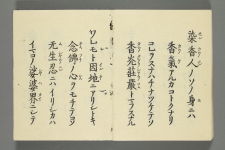 染香人ノソノ身ニハ
香氣アルカコトクナリ
コレヲスナハチナツケテソ
香光莊嚴トマフスナル
ワレモト因地ニアリシトキ
念佛ノ心ヲモチテコソ
无生忍ニハイリシカハ
イマコノ娑婆界ニシテ